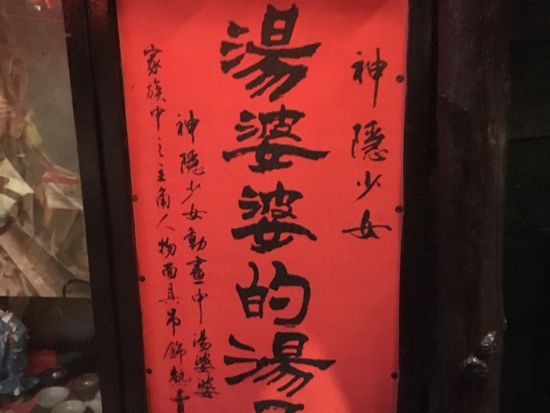 神隱少女
湯婆婆的湯
神隱少女動畫中湯婆婆
家族中之主角人物面具吊飾